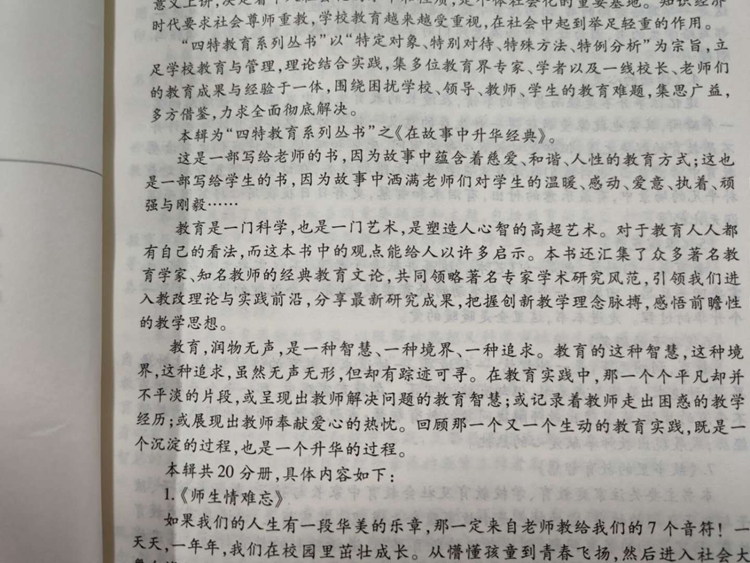 时代要求社会尊师重教,学校教育越来越受重视,在社会中起到举足轻重的作用。
“四特教育系列丛书”以“特定对象、特别对待、特殊方法、特例分析”为宗旨,立
足学校教育与管理,理论结合实践,集多位教育界专家、学者以及一线校长、老师们
的教育成果与经验于一体,围绕困扰学校、领导、教师、学生的教育难题,集思广益,
多方借鉴,力求全面彻底解决。
本辑为“四特教育系列丛书”之《在故事中升华经典》。
这是一部写给老师的书,因为故事中蕴含着慈爱、和谐、人性的教育方式;这也
是一部写给学生的书,因为故事中洒满老师们对学生的温暖、感动、爱意、执着、顽
强与刚毅……
教育是一门科学,也是一门艺术,是塑造人心智的高超艺术。对于教育人人都
有自己的看法,而这本书中的观点能给人以许多启示。本书还汇集了众多著名教
育学家、知名教师的经典教育文论,共同领略著名专家学术研究风范,引领我们进
入教改理论与实践前沿,分享最新研究成果,把握创新教学理念脉搏,感悟前瞻性
的教学思想。
教育,润物无声,是一种智慧、一种境界、一种追求。教育的这种智慧,这种境
界,这种追求,虽然无声无形,但却有踪迹可寻。在教育实践中,那一个个平凡却并
不平淡的片段,或呈现出教师解决问题的教育智慧;或记录着教师走出困惑的教学
经历;或展现出教师奉献爱心的热忱。回顾那一个又一个生动的教育实践,既是一
个沉淀的过程,也是一个升华的过程。
本辑共20分册,具体内容如下:
1.《师生情难忘》
如果我们的人生有一段华美的乐章,那一定来自老师教给我们的7个音符!一
天天,一年年,我们在校园里茁壮成长。从懵懂孩童到青春飞扬,然后进入社会大